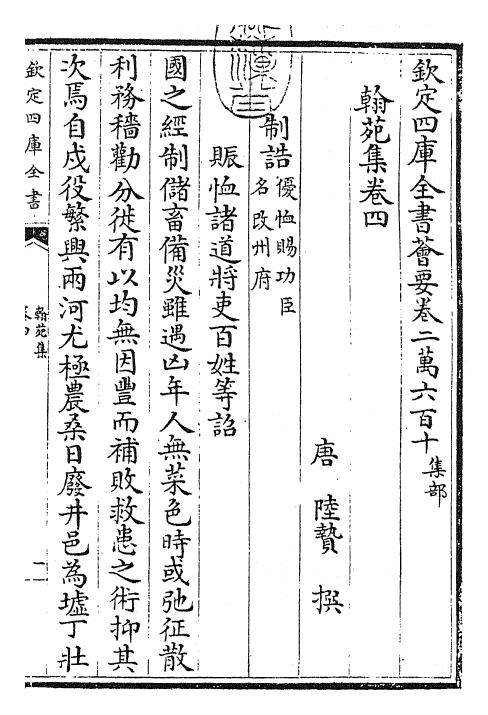 欽定四庫全書薈要卷二萬六百十 集部
翰苑集卷四
唐 陸贄 撰
制誥 優恤賜功臣
名改州府
賑恤諸道將吏百姓等詔
國之經制儲畜備災雖遇凶年人無菜色時或弛征散
利務穡勸分徙有以均無因豐而補敗救患之術抑其
次焉自戍役繁興兩河尤極農桑日廢井邑為墟丁壯
欽定四庫全書
翰苑集
卷四
一